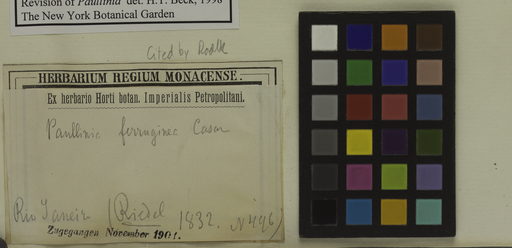 Revision of Paullinia det. H.T. Beck, 1998
The New York Botanical Garden
Cited by Radlk
HERBARIUM REGIUM MONACENSE.
Ex herbario Horti botan. Imperialis Petropolitani.
Paullinia ferruginea Casar
Rio Janeiro (Riedel 1832. N 496)
Zugegangen November 1901.